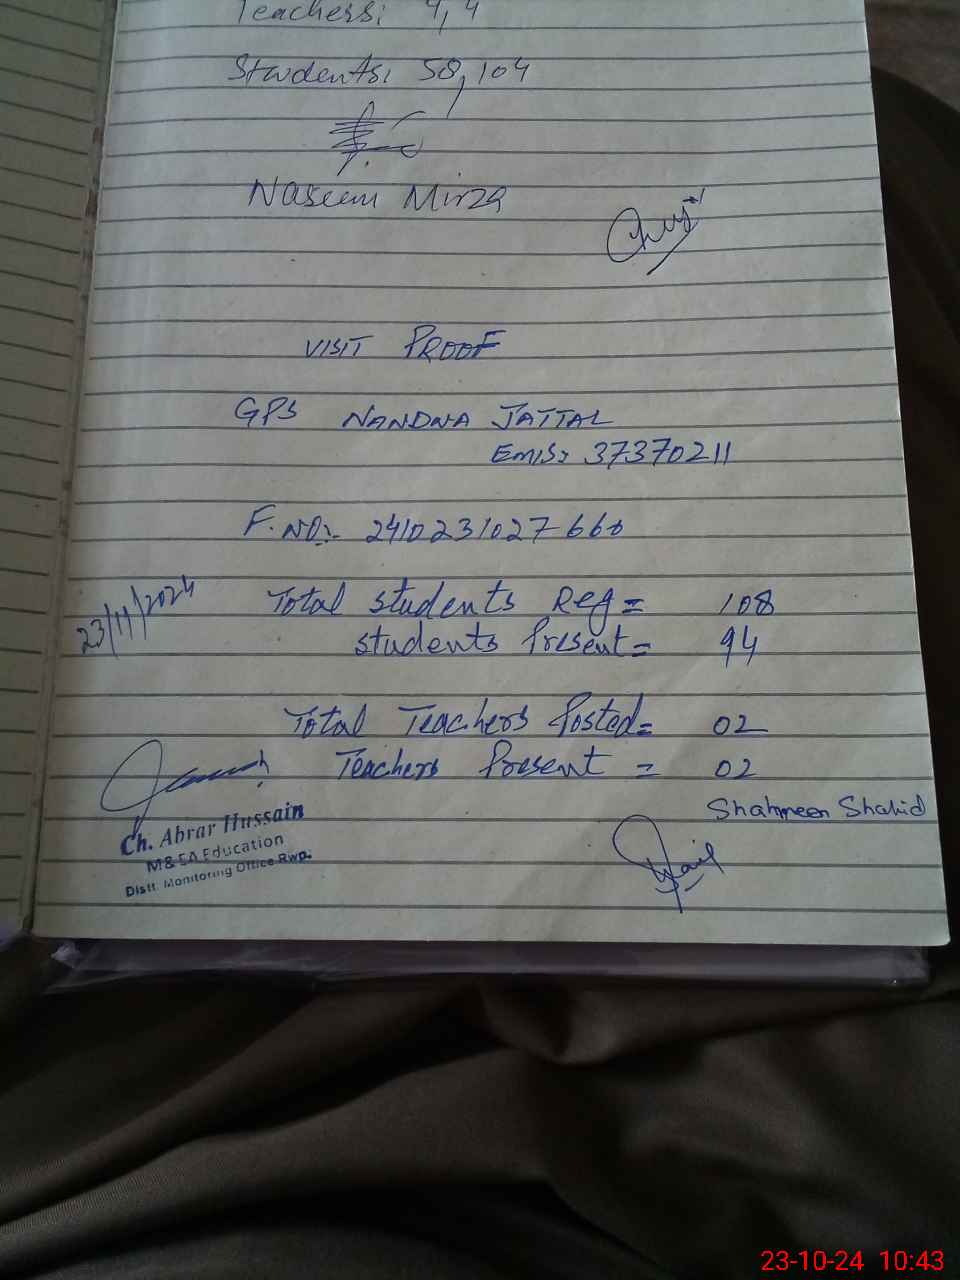 Teachers: 4, 4
Students: 58, 104
Naseem Mirza
VISIT PROOF
GPS NANDNA JATTAL
EMIS: 37370211
F.NO:- 2410231027660
23/11/2024
Total students Reg = 108
students Present = 94
Total Teachers Posted = 02
Teachers Present = 02
Shahmeen Shahid
Ch. Abrar Hussain
M&EA Education
Distt. Monitoring Office Rwp.
23-10-24 10:43